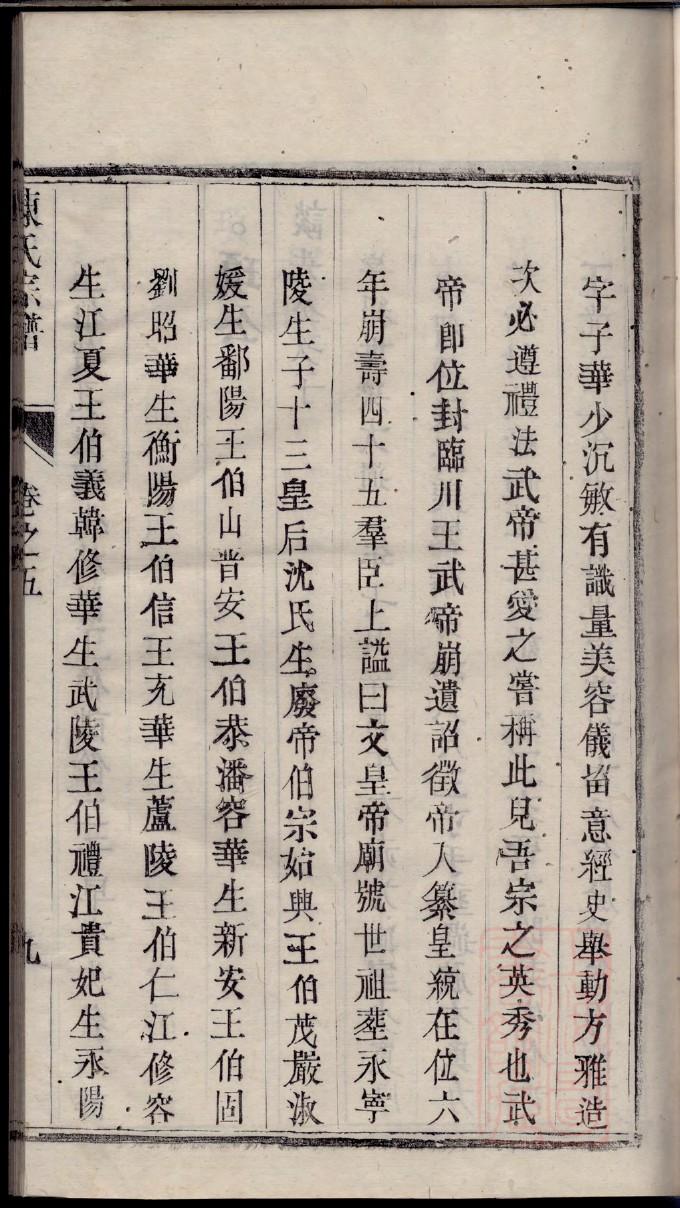 字子華少沉敏有識量美容儀畱意經史舉動方雅造
次必遵禮法武帝甚愛之嘗稱此兒吾宗之英秀也武
帝即位封臨川王武帝崩遺詔徵帝人纂皇統在位六
年崩壽四十五羣臣上謚曰文皇帝廟號世祖塟永寧
陵生子十三皇后沈氏生廢帝伯宗始興王伯茂嚴淑
媛生鄱陽王伯山晉安王伯恭潘容華生新安王伯固
劉昭華生衡陽王伯信王充華生蘆陵王伯仁江修容
生江夏王伯義韓修華生武陵王伯禮江貴妃生永陽
陳氏宗譜 卷之五 九